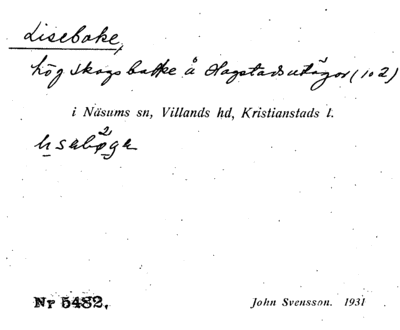 Lisebake,
hög skogsbacke å Hagstads utägor (1 o 2)
i Näsums sn, Villands hd, Kristianstads l.
Nr 5482.
John Svensson. 1931